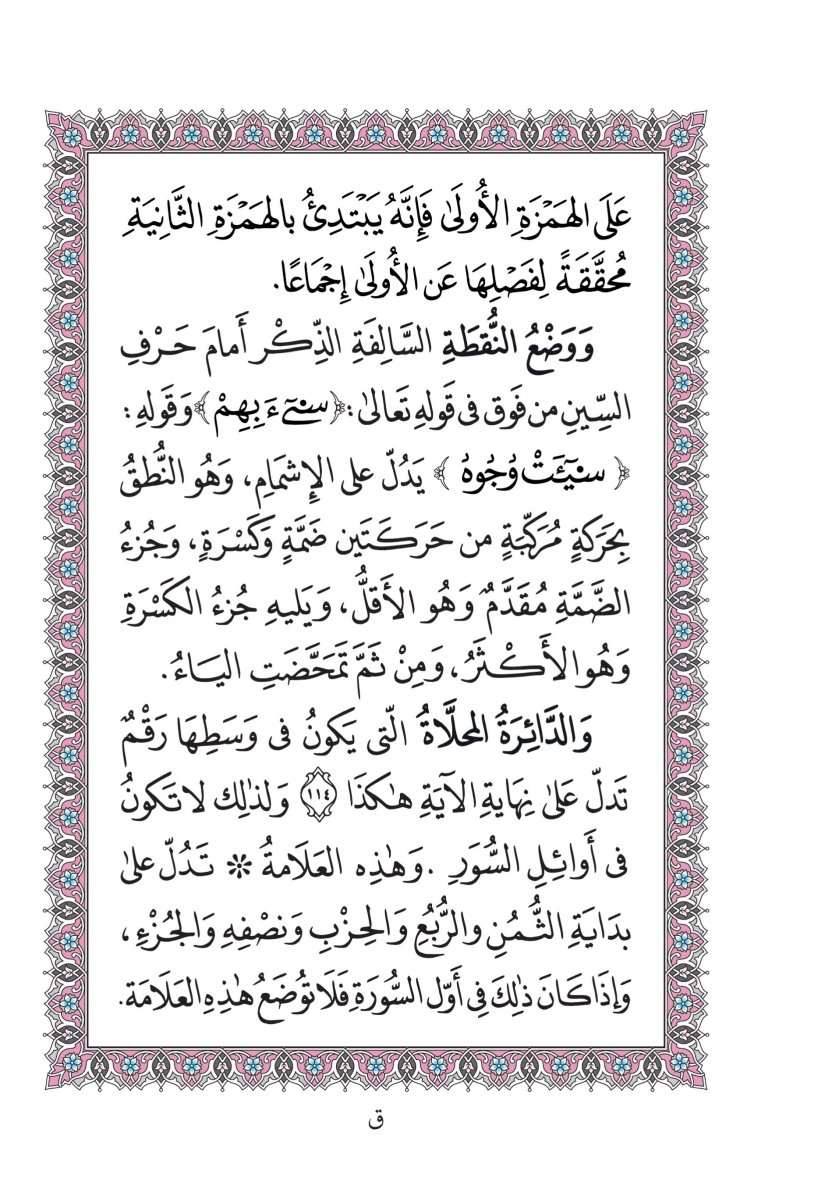 عَلَى الهَمْزَةِ الأُولَىٰ فَإِنَّهُ يَبْتَدِئُ بالهَمْزَةِ الثَّانِيَةِ
مُحَقَّقَةً لِفَصْلِهَا عَنِ الأُولَىٰ إِجْمَاعًا.
وَوَضْعُ النُّقطَةِ السَّالِفَةِ الذِّكْر أَمامَ حَرْفِ
السِّينِ من فَوق فى قَولهِ تَعَالىٰ: ﴿سِىٓءَ بِهِمْ﴾ وَقَولهِ :
﴿ سِيٓـَٔتْ وُجُوهُ ﴾ يَدُلّ على الإِشمَامِ، وَهُو النُّطقُ
بِحَرَكةٍ مُرَكّبَةٍ من حَرَكَتَين ضَمَّةٍ وَكَسْرَةٍ، وَجُزءُ
الضَّمَّةِ مُقَدَّمٌ وَهُو الأَقلُّ، وَيَليهِ جُزءُ الكَسْرَةِ
وَهُو الأَكْثَرُ، وَمِنْ ثَمَّ تَمَحَّضَتِ اليَاءُ.
وَالدَّائِرَةُ المحلَّاةُ الّتى يَكونُ فى وَسَطِهَا رَقْمٌ
تَدلّ عَلىٰ نِهَايةِ الآيَةِ هٰكذَا ۝١١٤ وَلذٰلِك لا تَكونُ
فى أَوائِلِ السُّوَرِ . وَهٰذِه العَلَامةُ ۞ تَدُلّ علىٰ
بدَايَةِ الثُّمُنِ والرُّبُعِ وَالحِزْبِ وَنصْفِهِ وَالجُزْءِ،
وَإذَا كَانَ ذٰلِكَ فِى أَوّل السُّورَةِ فَلَا تُوضَعُ هٰذِهِ العَلَامَة.
ق